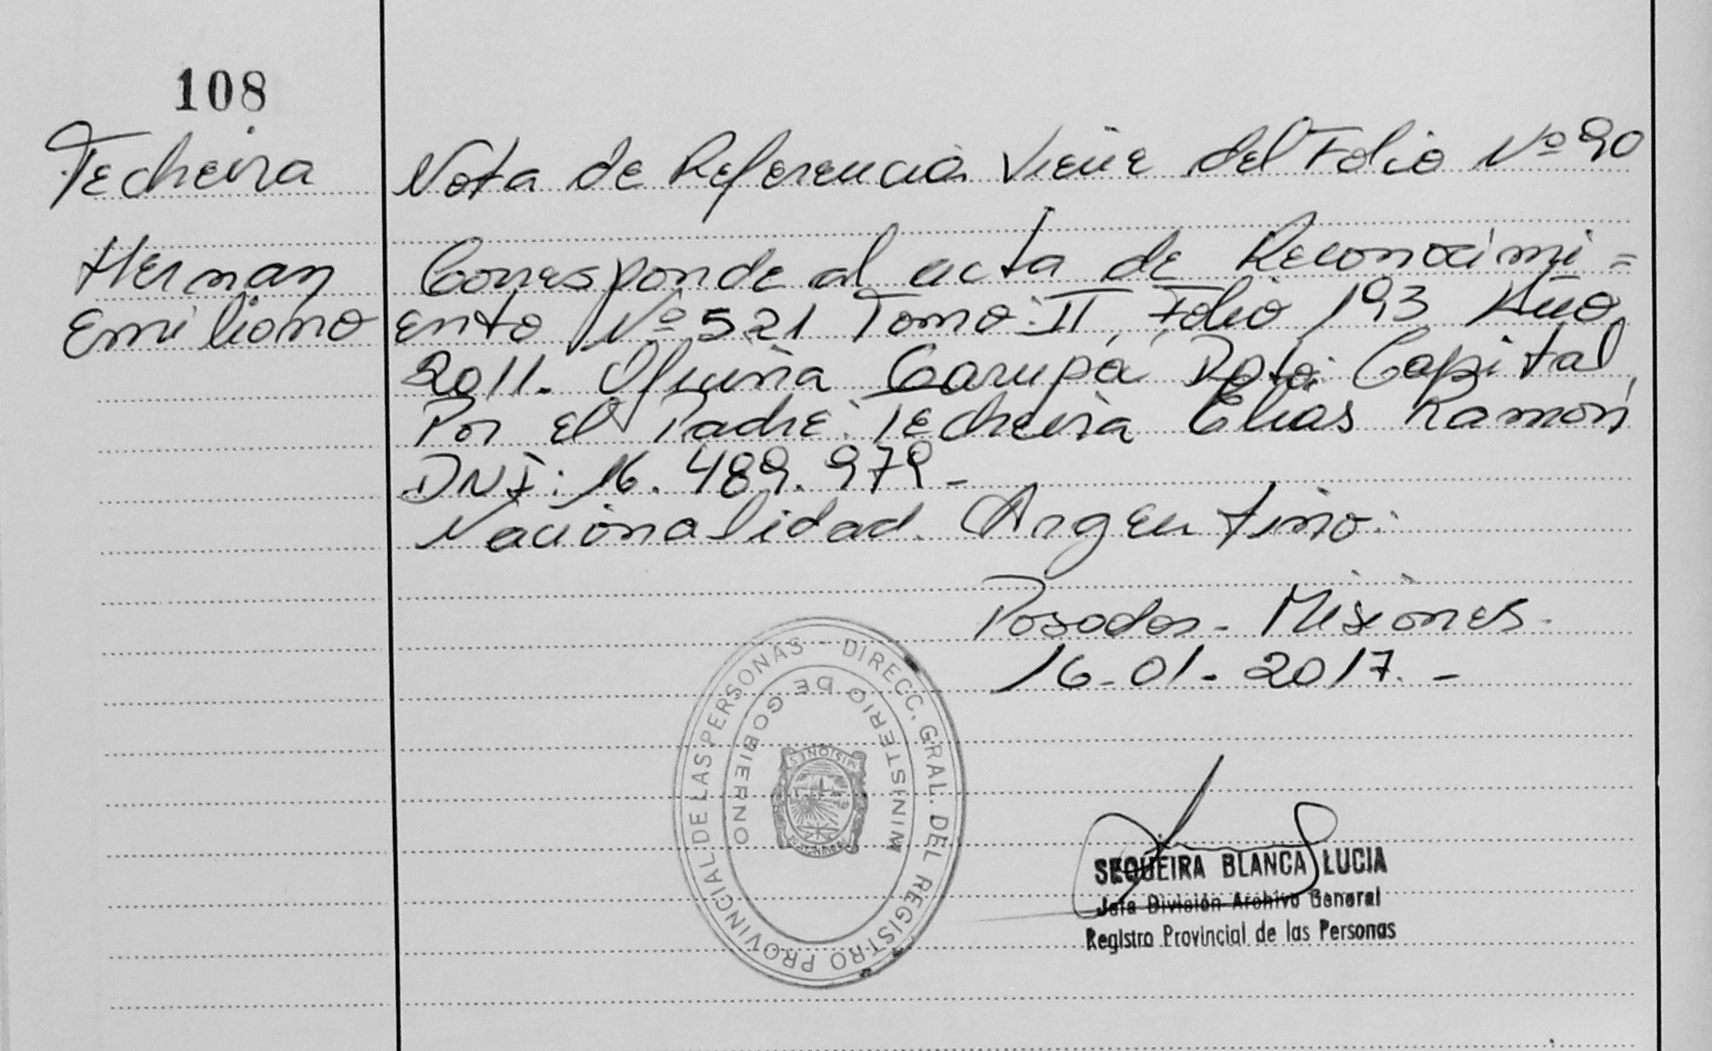 108
Techeira
Hernan
Emiliano
Nota de Referencia. Viene del Folio Nº 90
Corresponde al acta de Reconocimi=
ento Nº 521 Tomo: II, Folio 193 Año
2011. Oficina Garupá Dpto: Capital,
Por el Padre: Techeira Elias Ramón
DNI: 16.489.979-
Nacionalidad. Argentino.
Posadas - Misiones.
16-01-2017.-
DIRECC. GRAL. DEL REGISTRO PROVINCIAL DE LAS PERSONAS -
MINISTERIO DE GOBIERNO
MISIONES
SEQUEIRA BLANCA LUCIA
Jefa División Archivo General
Registro Provincial de las Personas